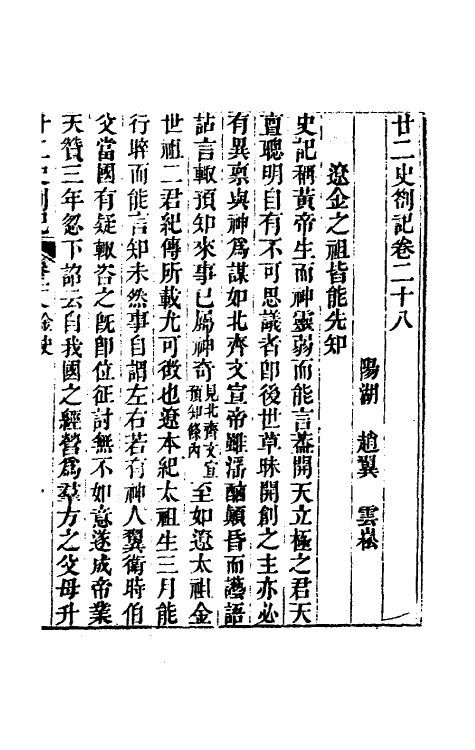 廿二史劄記卷二十八
陽湖 趙翼 雲崧
遼金之祖皆能先知
史記稱黃帝生而神靈弱而能言蓋開天立極之君天
亶聰明自有不可思議者卽後世草昧開創之主亦必
有異稟與神爲謀如北齊文宣帝雖淫酗顛昏而藝語
詁言輒預知來事已屬神奇見北齊文宣預知條內至如遼太祖金
世祖二君紀傳所載尤可徵也遼本紀太祖生三月能
行晬而能言知未然事自謂左右若有神人翼衛時伯
父當國有疑輒咨之旣卽位征討無不如意遂成帝業
天贊三年忽下詔云自我國之經營爲羣方之父母升
廿二史劄記